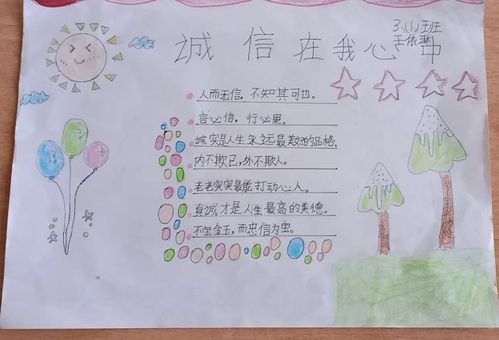 3.(1)班
诚信在我心中
人而无信，不知其可也。
言必信，行必果。
诚实是人生永远最美好的品格。
内不欺己，外不欺人。
老老实实最能打动心人。
真诚才是人生最高的美德。
不宝金玉，而忠信为宝。